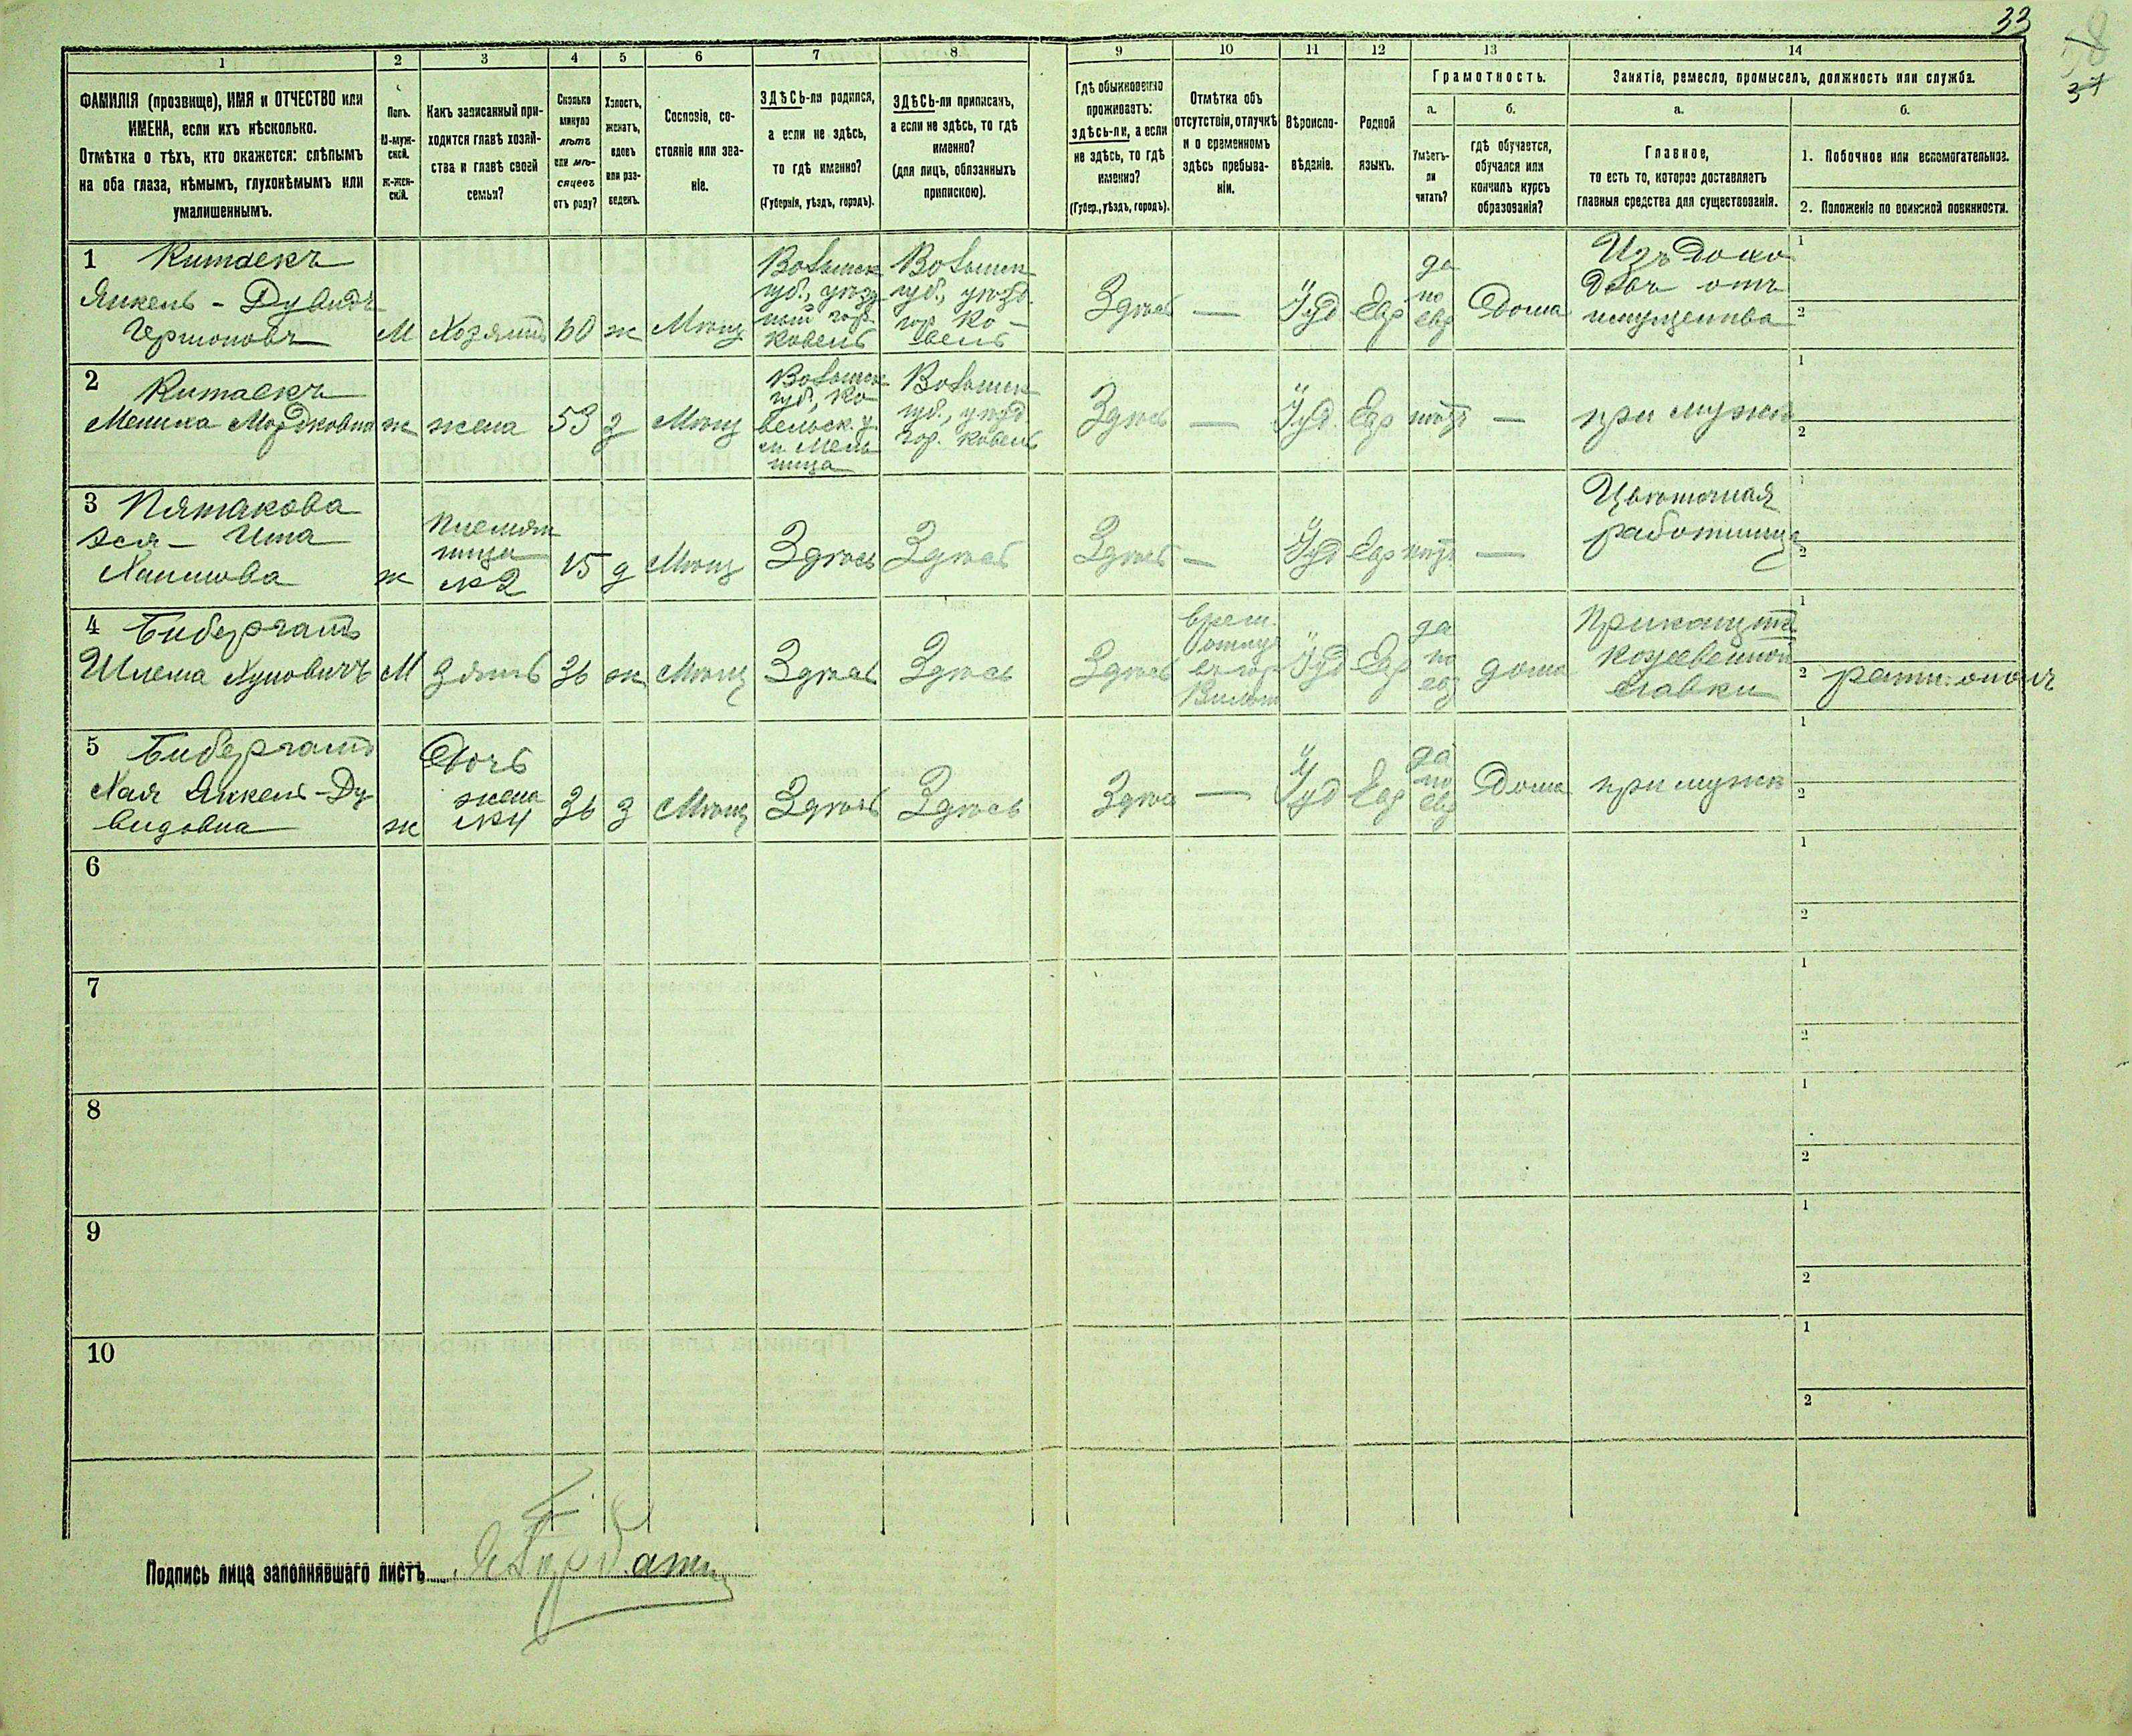 33
58
37
1 2 3 4 5 6 7 8 9 10 11 12 13 14
ФАМИЛІЯ (прозвище), ИМЯ и ОТЧЕСТВО или
ИМЕНА, если ихъ нѣсколько.
Отмѣтка о тѣхъ, кто окажется: слѣпымъ
на оба глаза, нѣмымъ, глухонѣмымъ или
умалишеннымъ.
Полъ.
М-муж-
ской.
ж-жен-
скій.
Какъ записанный при-
ходится главѣ хозяй-
ства и главѣ своей
семьи?
Сколько
минуло
лѣтъ
или мѣ-
сяцевъ
отъ роду?
Холостъ,
женатъ,
вдовъ
или раз-
веденъ.
Сословіе, со-
стояніе или зва-
ніе.
ЗДѢСЬ-ли родился,
а если не здѣсь,
то гдѣ именно?
(Губернія, уѣздъ, городъ).
ЗДѢСЬ-ли приписанъ,
а если не здѣсь, то гдѣ
именно?
(для лицъ, обязанныхъ
припискою).
Гдѣ обыкновенно
проживаетъ:
здѣсь-ли, а если
не здѣсь, то гдѣ
именно?
(Губер., уѣздъ, городъ).
Отмѣтка объ
отсутствіи, отлучкѣ
и о временномъ
здѣсь пребыва-
ніи.
Вѣроиспо-
вѣданіе.
Родной
языкъ.
Грамотность.
а.
Умѣетъ-
ли
читать?
б.
гдѣ обучается,
обучался или
кончилъ курсъ
образованія?
Занятіе, ремесло, промыселъ, должность или служба.
а.
Главное,
то есть то, которое доставляетъ
главныя средства для существованія.
б.
1. Побочное или вспомогательное.
2. Положеніе по воинской повинности.
1 Китаекъ
Янкель - Дувидъ
Гершоновъ
М
Хозяинъ
60
ж
Мѣщ
Волынск
губ., уѣзд
ный гор.
Ковель
Волынск
губ., уѣзд.
гор. Ко-
вель
Здѣсь
—
Іуд
Евр
да
по
евр
Дома
Изъ дохо
довъ отъ
имущества
1
2
2 Китаекъ
Мениха Мордковна
ж
жена
53
з
Мѣщ
Волынск
губ., Ко
вельск. у.
м. Мель
ница
Волынск
губ., уѣзд
гор. Ковель
Здѣсь
—
Іуд.
Евр
нѣтъ
—
при мужѣ
1
2
3 Пятакова
Эся - Ита
Хаимова
ж
Племян
ница
№2
15
д
Мѣщ
Здѣсь
Здѣсь
Здѣсь
—
Іуд
Евр
нѣтъ
—
Цвѣточная
работница
2
4 Бибергалъ
Шлема Хуновичъ
М
зять
36
ж
Мѣщ
Здѣсь
Здѣсь
Здѣсь
врем.
отлуч
въ гор
Іуд
Евр
да
по
евр
дома
Прикащикъ
кожевенной
лавки
1
2 ратн. ополч
5 Бибергалъ
Хая Янкель-Ду
видовна
ж
Дочь
жена
№4
36
з
Мѣщ
Здѣсь
Здѣсь
Здѣсь
—
Іуд
Евр
да
по
евр
Дома
при мужѣ
1
2
6
1
2
7
1
2
8
1
2
9
1
2
10
1
2
Подпись лица заполнявшаго листъ